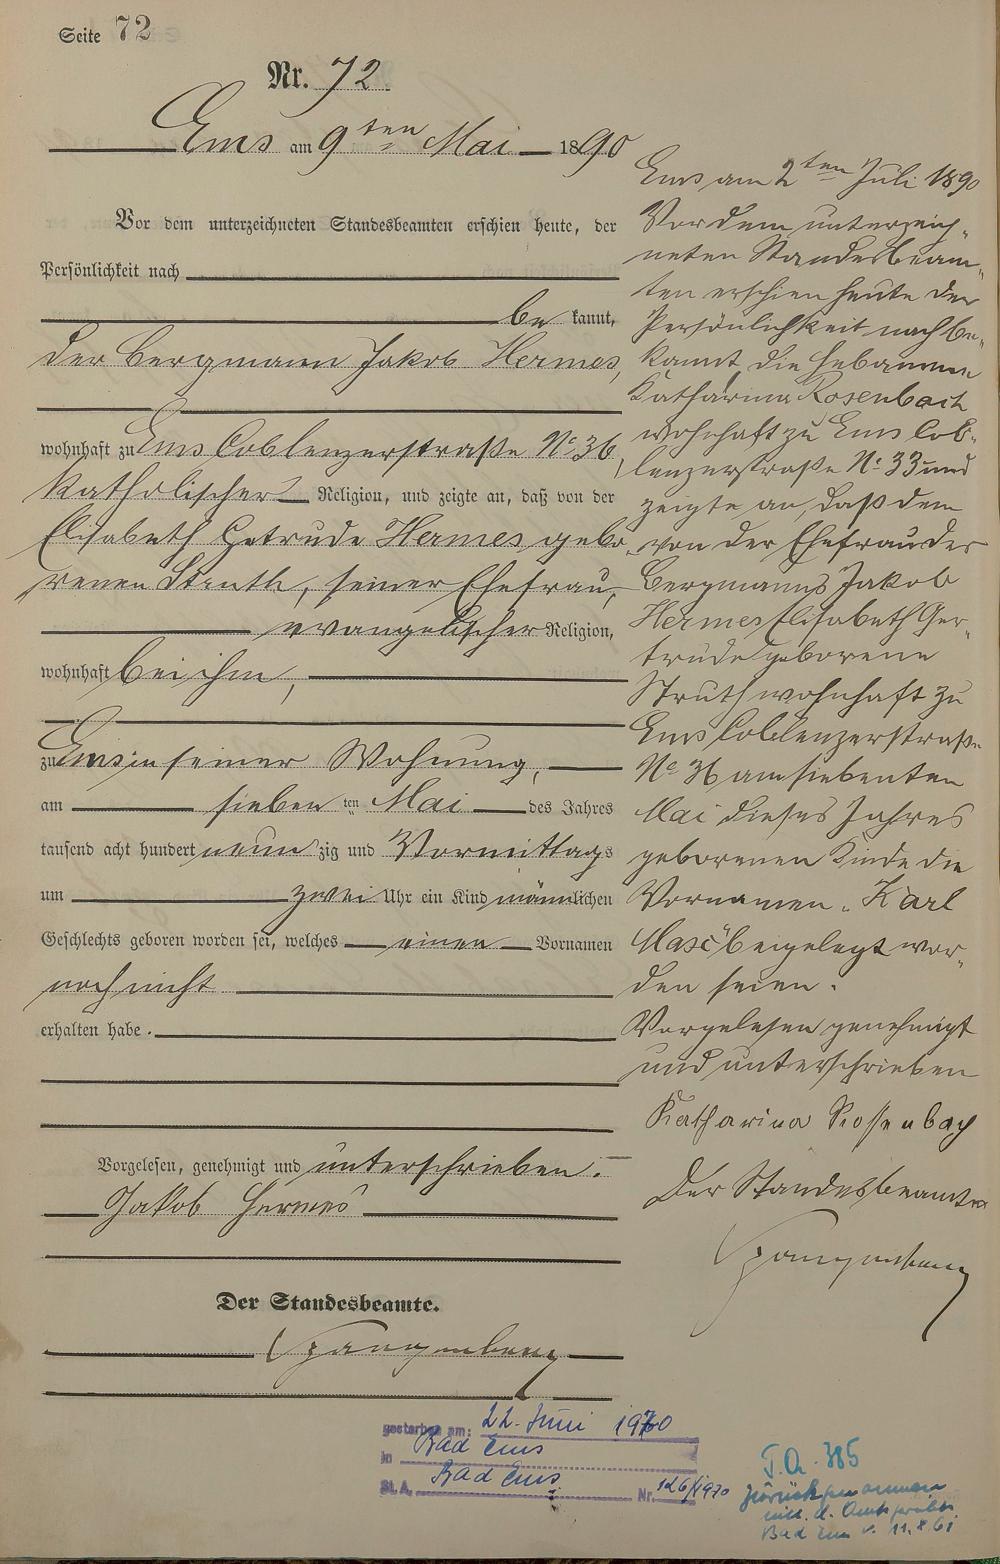 Seite 72
Nr. 72.
Ems am 9ten Mai 1890
Vor dem unterzeichneten Standesbeamten erschien heute, der
Persönlichkeit nach
be kannt,
der Bergmann Jakob Hermes,
wohnhaft zu Ems Coblenzerstraße No 36,
katholischer Religion, und zeigte an, daß von der
Elisabeth Getrude Hermes gebo-
renen Struth, seiner Ehefrau,
evangelischer Religion,
wohnhaft bei ihm,
zu Ems in seiner Wohnung,
am sieben ten Mai des Jahres
tausend acht hundert neun zig und Vormittags
um zwei Uhr ein Kind männlichen
Geschlechts geboren worden sei, welches einen Vornamen
noch nicht
erhalten habe.
Vorgelesen, genehmigt und unterschrieben.
Jakob Hermes
Der Standesbeamte.
Spangenberg
Ems am 2ten Juli 1890
Vor dem unterzeich-
neten Standesbeam-
ten erschien heute der
Persönlichkeit nach be-
kannt, die Hebamme
Katharina Rosenbach
wohnhaft zu Ems Cob-
lenzerstraße No 33 und
zeigte an, daß dem
von der Ehefrau des
Bergmanns Jakob
Hermes Elisabeth Ger-
trude geborene
Struth wohnhaft zu
Ems Coblenzerstraße
No 36 am siebenten
Mai dieses Jahres
geborenen Kinde die
Vornamen „Karl
Max" beigelegt wor-
den seien.
Vorgelesen genehmigt
und unterschrieben
Katharina Rosenbach
Der Standesbeamte
Spangenberg
gestorben am: 22. Juni 1970
in Bad Ems
St.A. Bad Ems Nr. 126/1970
T.A. 385
mit d.
Bad Ems v. 11.8.61